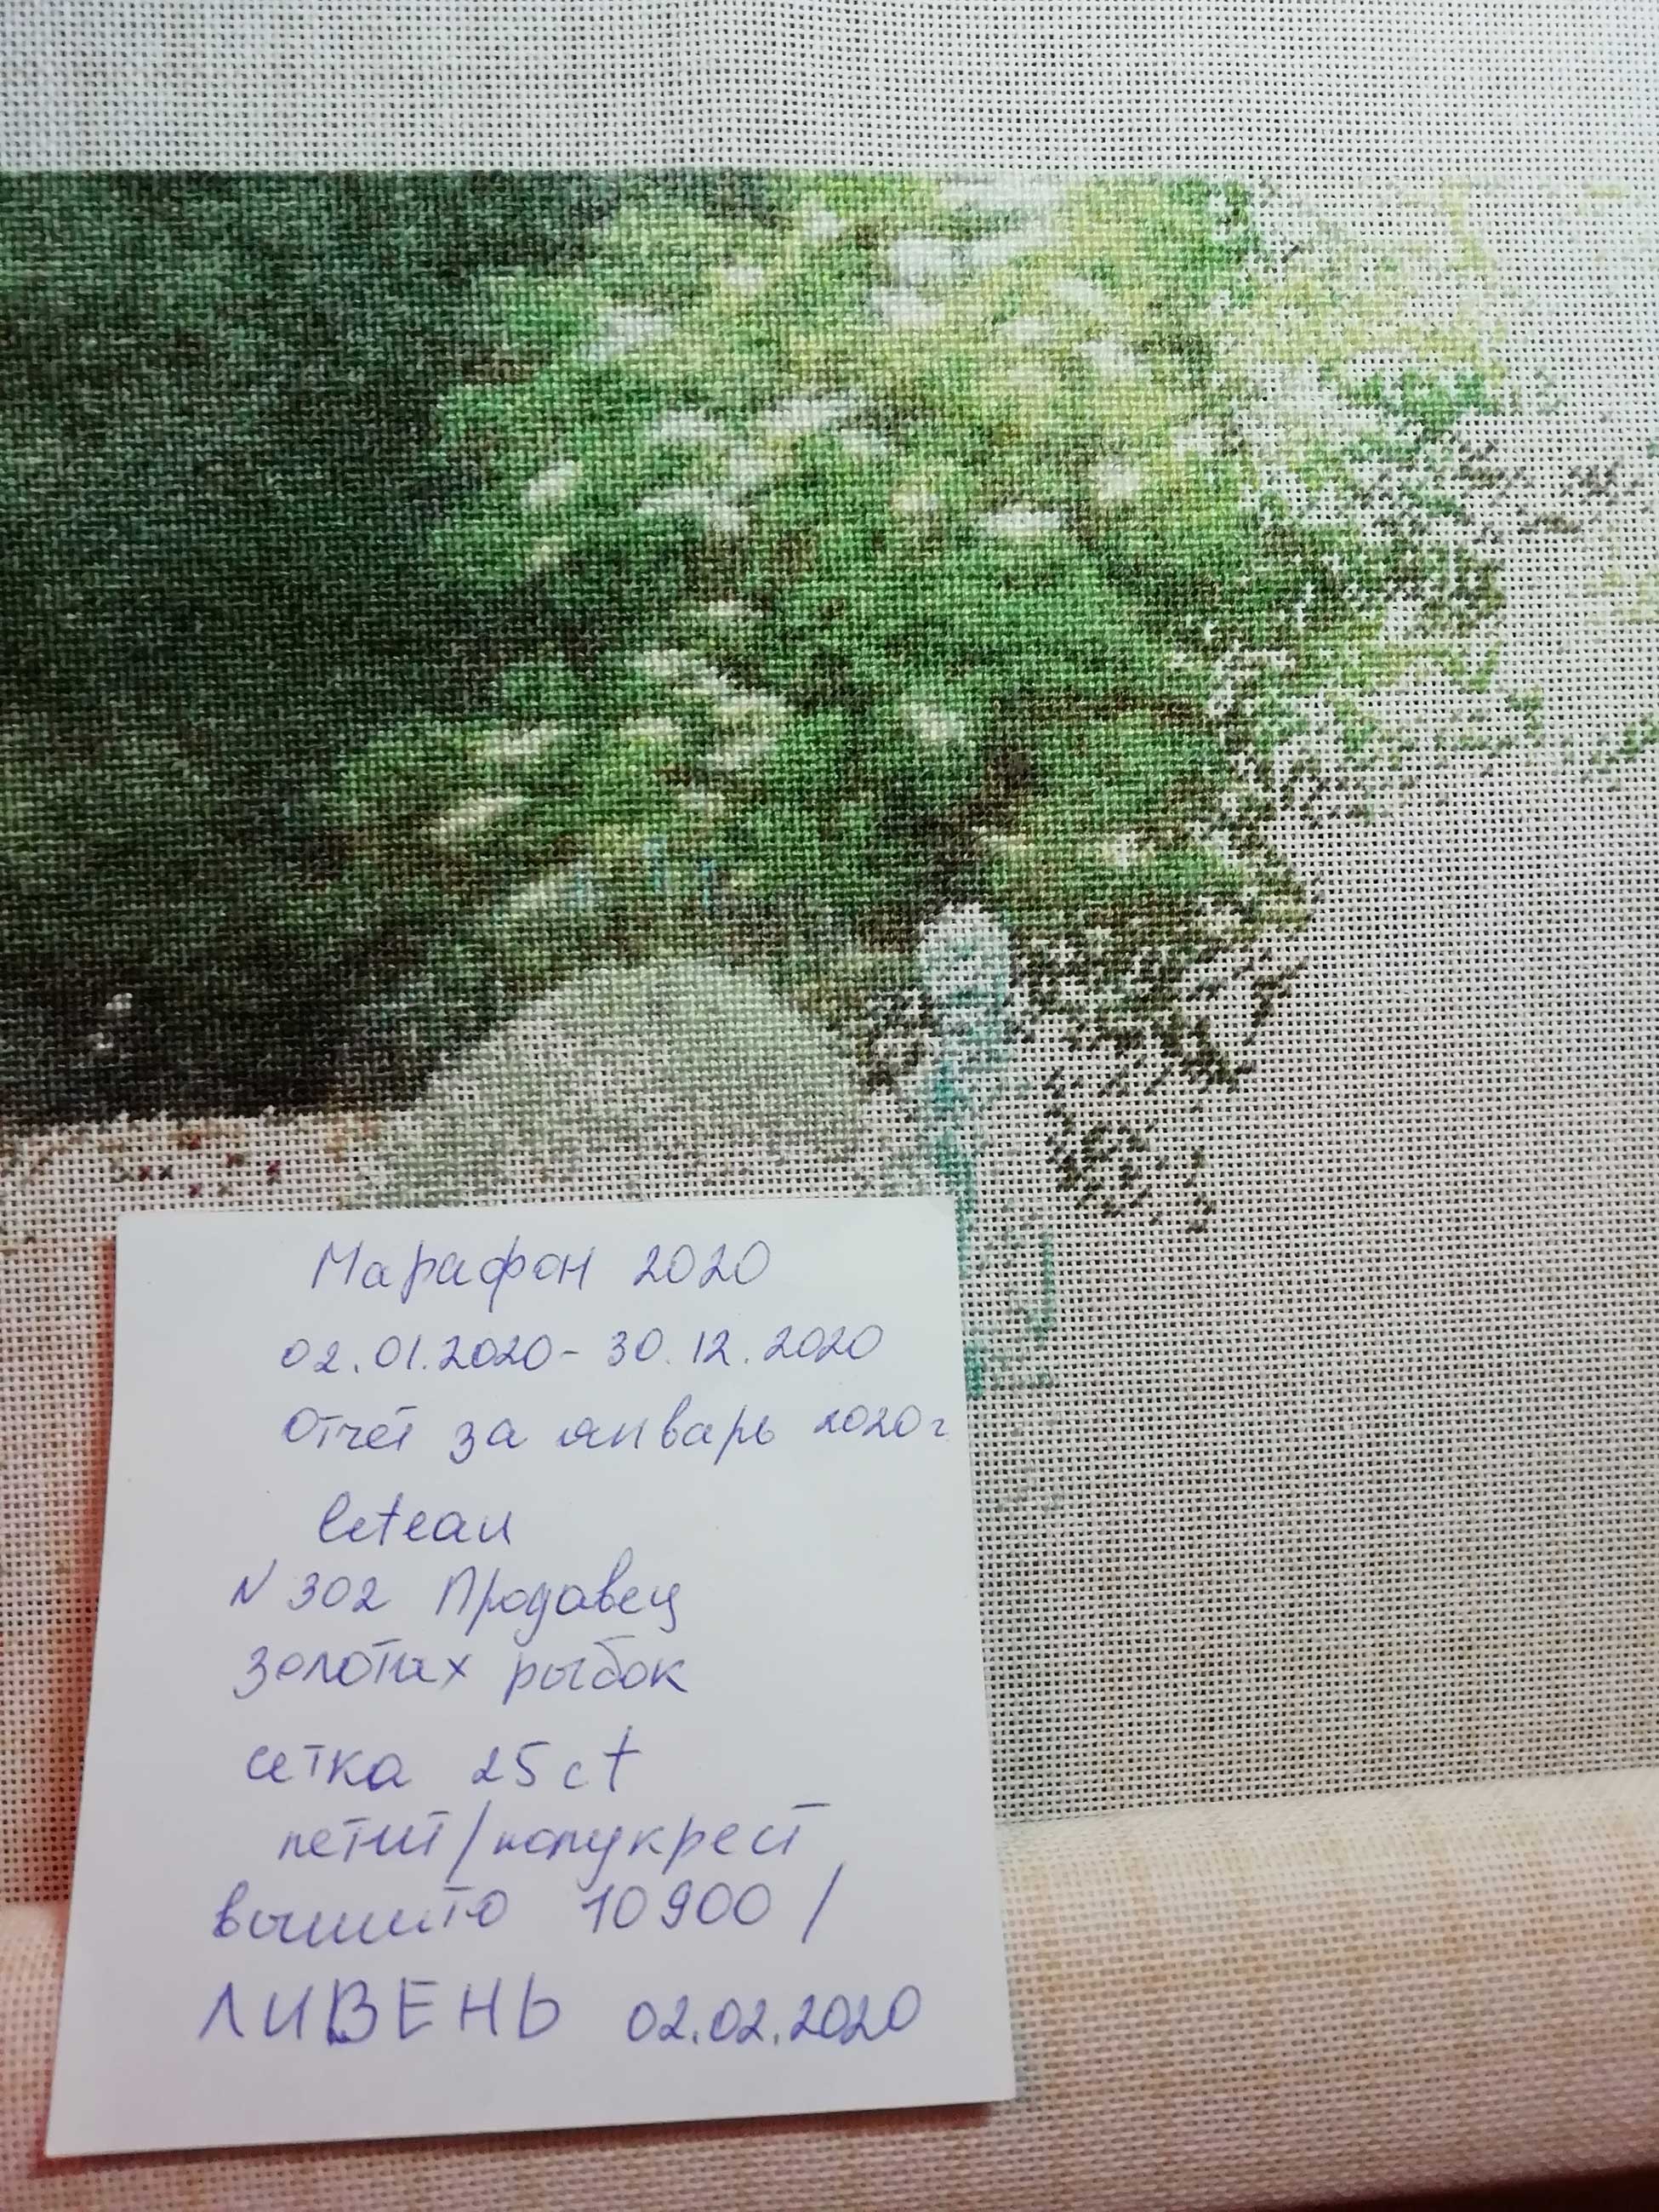 Марафон 2020
02.01.2020- 30.12.2020
Отчёт за январь 2020г
N 302 Продавец
золотых рыбок
сетка 25ct
петит/полукрест
вышито 10900 /
ЛИВЕНЬ 02.02.2020